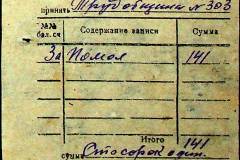 принять Трубовщика № 303
№№ бал. сч Содержание записи Сумма
За Помол 141
Итого 141
сумма Сто сорок один